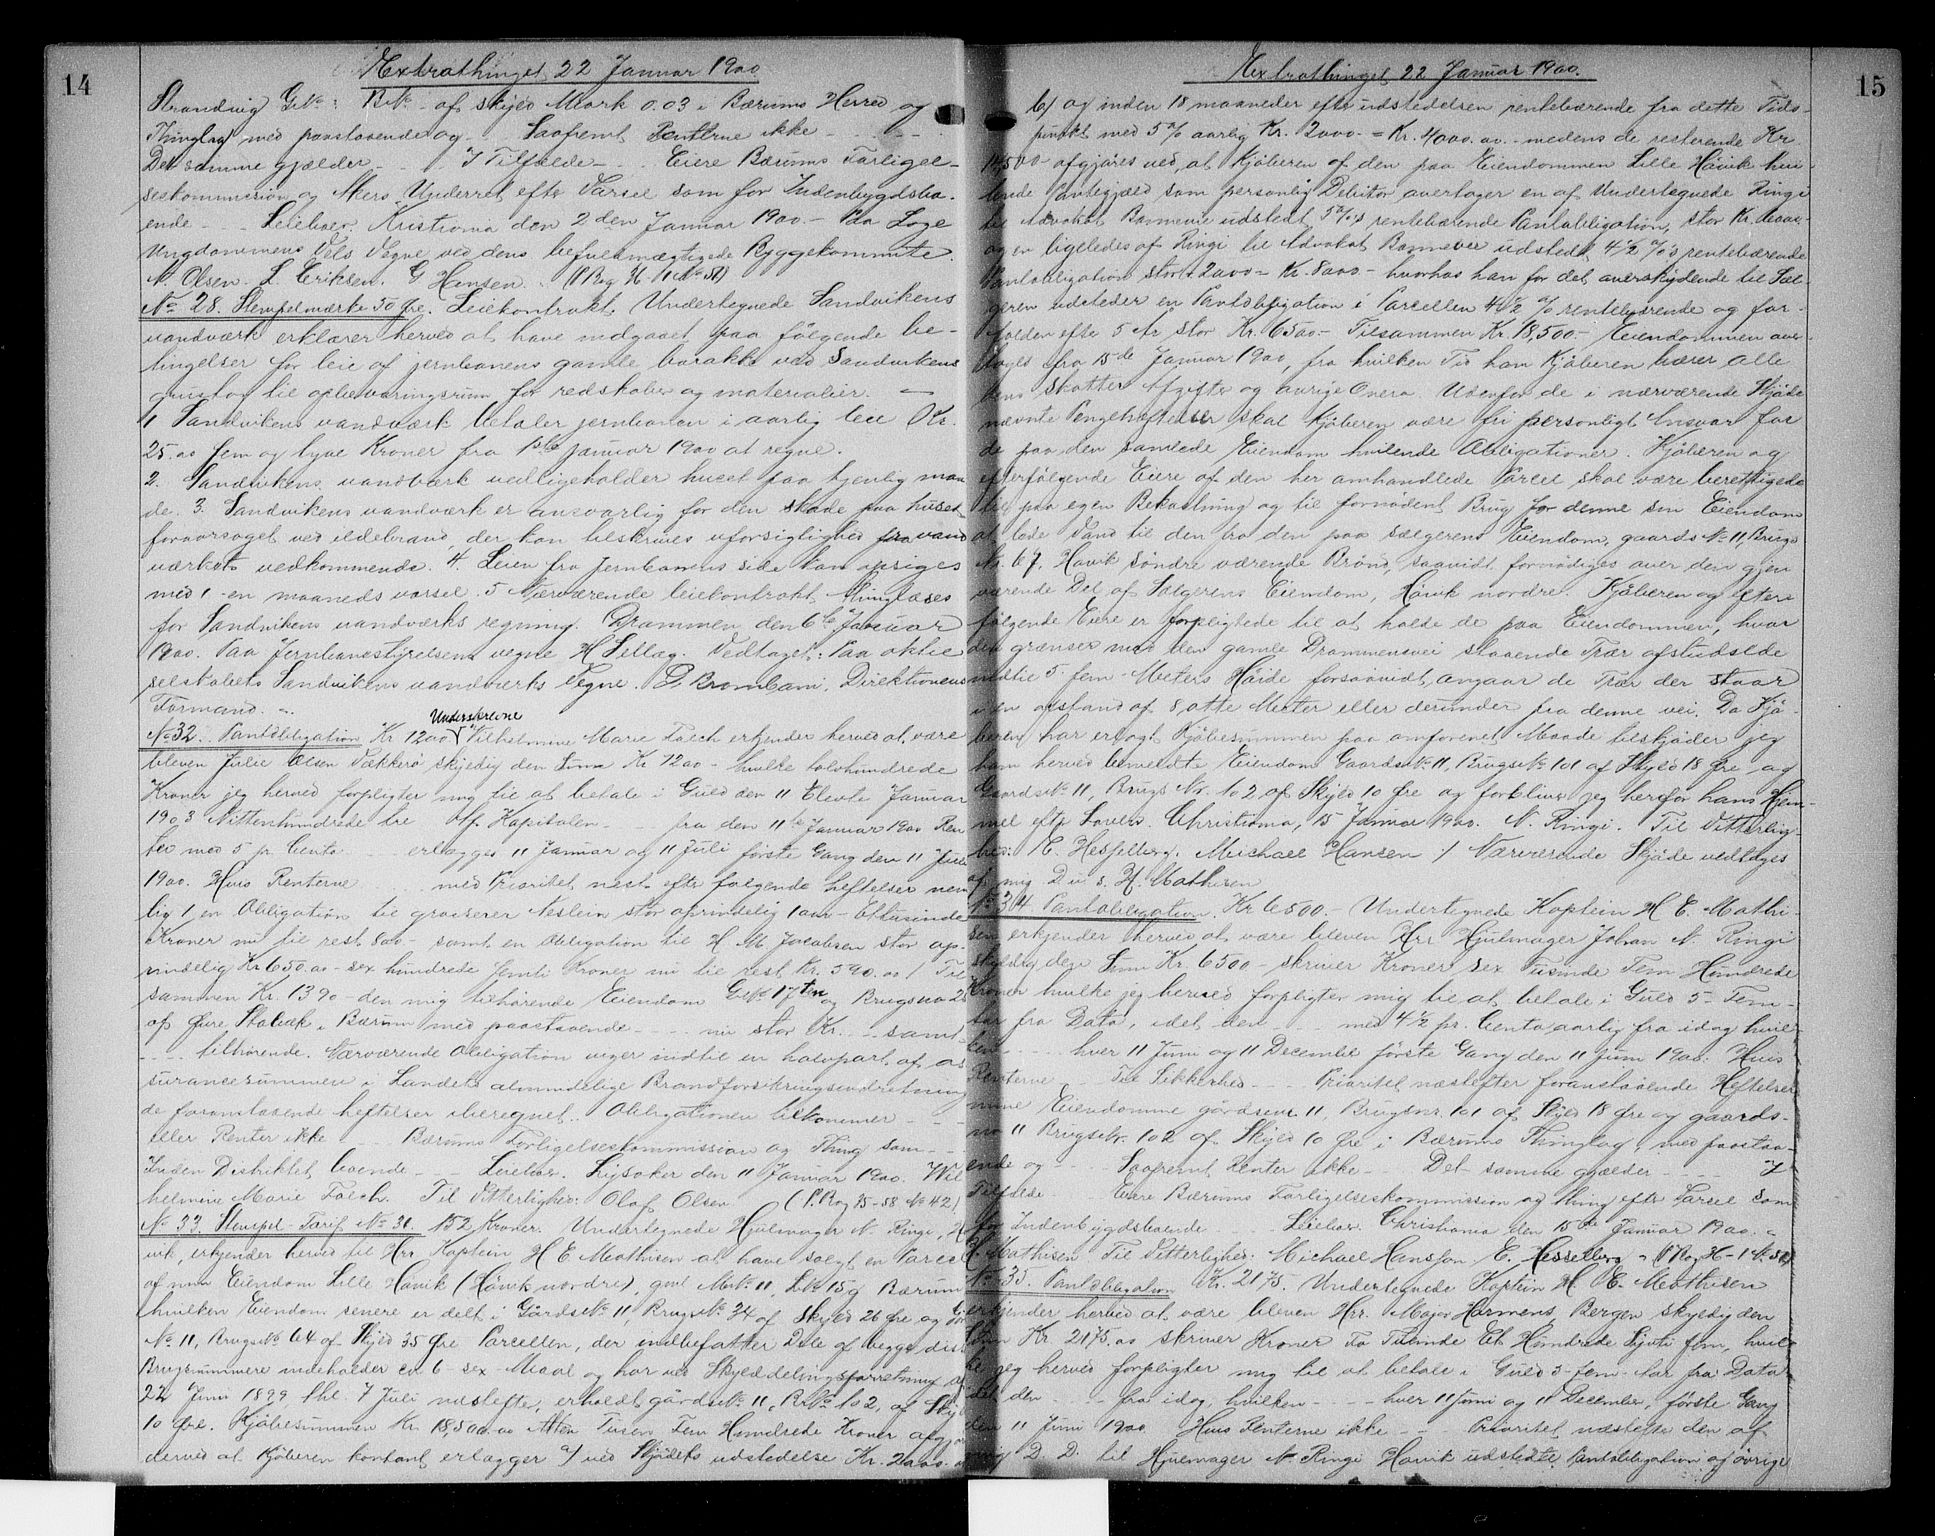 14
Extrathinget 22 Januar 1900
Strandvig GNo: BNo - af skyld Mark 0.03 i Bærums Herred og
Thinglag med paastaaende og - - Saafremt Renterne ikke - - -
Det samme gjælder - - I Tilfælde - - Eiere Bærums Forligel-
seskommission og Akers Underret efter Varsel som for Indenbygdsbo-
ende - - Leilæer. Kristiania den 2den Januar 1900 - Paa Loge
Ungdommens Vels Vegne ved dens befuldmægtigede Byggekommite.
N. Olsen. L. Eriksen. G Hansen.
No 28. Stempelmærke 50 Øre. Leiekontrakt. Undertegnede Sandvikens
vandværk erklærer herved at have indgaaet paa følgende be-
tingelser for leie af jernbanens gamle barakke ved Sandvikens
grustag til opbevaringsrum for redskaber og materialier. -
1 Sandvikens vandværk betaler jernbanen i aarlig leie Kr.
25.00 fem og tyve Kroner fra 1ste januar 1900 at regne.
2. Sandvikens vandværk vedligeholder huset paa tjenlig maa
de. 3. Sandvikens vandværk er ansvarlig for den skade paa huset
foraarsaget ved ildebrand, der kan tilskrives uforsigtighed fra vand
værkets vedkommende. 4. Leien fra jernbanens side kan opsiges
med 1 - en maaneds varsel. 5 Nærværende leiekontrakt thinglæses
for Sandvikens vandværks regning. Drammen den 6te Januar
1900. Paa Jernbanestyrelsens vegne H Lillæg. Vedtaget: Paa aktie
selskabets Sandvikens vandværks Vegne. Direktionens
Formand. -
Underskrevne
No 32. Pantobligation Kr 1200 Vilhelmine Marie Falch erkjender herved at være
bleven Julie Olsen Vækkerø skyldig den Sum Kr 1200 - hvilke tolvhundrede
Kroner jeg herved forpligter mig til at betale i Guld den 11 Elevte Januar
1903 Nittenhundrede tre Af Kapitalen - - fra den 11te Januar 1900 Ren
ter med 5 pr. Cento - - erlægges 11 Januar og 11 Juli første Gang den 11 Juli
1900. Hvis Renterne - - med Prioritet næst efter følgende heftelser nem
lig 1 en Obligation til grosserer Neslein stor oprindelig 1000 - Ettusinde
Kroner nu til rest 800 - samt en Obligation til H. M. Jacobsen stor op-
rindelig Kr 650.00 - sex hundrede femti Kroner nu til rest Kr. 590.00 / Til
sammen Kr. 1390 - den mig tilhørende Eiendom GNo 17ten og Brugsno 2
af Øvre Stabæk i Bærum med paastaaende - - - nu stor Kr. - - samt
- - - tilhørende. Nærværende Obligation viger indtil en halvpart af as
surancesummen i Landets almindelige Brandforsikringsindretning
de foranstaaende heftelser iberegnet. Obligationen tilkommer - -
eller Renter ikke - - Bærums Forligelseskommission og Thing som - -
Inden Distriktet boende - - - Leilæer. Lysaker den 11 Januar 1900. Wil
helmine Marie Falch. Til Vitterlighed: Olaf Olsen (P.Bog 35-58 No 42)
No 33. Stempel-Tarif No 31. 152 Kroner. Undertegnede Hjulmager N. Ringi, Hø
vik, erkjender herved til Hrr Kaptein H E Mathisen at have solgt en Parcel
af min Eiendom Lille Høvik (Høvik nordre), gml MNo 11, LNo 15g Bærum
hvilken Eiendom senere er delt i GårdsNo 11, BrugsNo 34 af Skyld 26 Øre og Gds
No 11, BrugsNo 64 af Skyld 35 Øre Parcellen, der indbefatter Dele af begge disse
Brugsnummere indeholder ca 6 - sex - Maal og har ved Skylddelingsforretning af
22 Juni 1899 thl. 7 Juli næstefter, erholdt gårdsNo 11, BrNo 102, af Skyld
10 Øre. Kjøbesummen Kr. 18,500.00 Atten Tusen Fem Hundrede Kroner afgjøres
derved at Kjøberen kontant erlægger a/ ved Skjødets udstedelse Kr. 2000.00
15
Extrathinget 22 Januar 1900.
b/ og inden 18 maaneder efter udstedelsen rentebærende fra dette Tids-
punkt med 5 % aarlig Kr. 2000. - = Kr. 4000.00. - medens de resterende Kr
14,500 - afgjøres ved, at Kjøberen af den paa Eiendommen Lille Høvik hvi
lende Pantegjæld som personlig Debitor overtager en af Undertegnede Ringi
til Advokat udstedt 5 %'s rentebærende Pantobligation, stor Kr. 6000.-
og en ligeledes af Ringi til Advokat udstedt 4½ %'s rentebærende
Pantobligation stor 2000 - Kr. 8000 - hvorhos han for det overskydende til Sæl-
geren udsteder en Pantobligation i Parcellen 4½ % rentebærende og for-
falden efter 5 År stor Kr. 6500.- Tilsammen Kr. 18,500.- Eiendommen over
tages fra 15de Januar 1900, fra hvilken Tid han Kjøberen bærer alle
dens Skatter Afgifter og øvrige Onera. Udenfor de i nærværende Skjøde
nævnte Pengeheftelser skal Kjøberen være fri personligt Ansvar for
de paa den samlede Eiendom hvilende Obligationer. Kjøberen og
efterfølgende Eiere af den her omhandlede Parcel skal være berettigede
til paa egen Bekostning og til fornødent Brug for denne sin Eiendom
at lede Vand til den fra den paa sælgerens Eiendom, gaards No 11, Brugs
No. 67. Høvik søndre værende Brønd, saavidt fornødiges over den gjen
værende Del af Sælgerens Eiendom, Høvik nordre. Kjøberen og efter-
følgende Eiere er forpligtede til at holde de paa Eiendommen, hvor
den grænser mod den gamle Drammensvei staaende Trær afstudsede
indtil 5 - fem - Meters Høide forsaavidt angaar de Trær der staar
i en afstand af 8, otte Meter eller derunder fra denne vei. Da Kjø-
beren har erlagt Kjøbesummen paa omforenet Maade tilskjøder jeg
ham herved bemeldte Eiendom GaardsNo 11, BrugsNo 101 af Skyld 18 Øre og
GaardsNo 11, Brugs Nr. 102 af Skyld 10 Øre og forbliver jeg herfor hans Hjem-
mel efter Loven. Christiania, 15 Januar 1900. N. Ringi. Til Vitterlig-
hed: E. Hesselberg. Michael Hansen :/ Nærværende Skjøde vedtages
af mig D u s. H. Mathisen
No 34 Pantobligation. Kr 6500.- Undertegnede Kaptein H E. Mathi-
sen erkjender herved at være bleven Hrr Hjulmager Johan N. Ringi
skyldig den Sum Kr. 6500 - skriver Kroner Sex Tusinde Fem Hundrede
Kroner hvilke jeg herved forpligter mig til at betale i Guld 5 - Fem -
aar fra Dato, idet den - - - med 4½ pr. Cento aarlig fra idag hvil-
ken - - - hver 11 Juni og 11 December første Gang den 11 Juni 1900. Hvis
Renterne - - Til Sikkerhed - - - Prioritet næstefter foranstaaende Heftelser
mine Eiendomme gårdsenr 11, Brugsnr. 101 af Skyld 18 Øre og gaards-
no 11 Brugsnr. 102 af Skyld 10 Øre i Bærums Thinglag, med paastaa-
ende og - - Saafremt Renter ikke - - Det samme gjælder - - I
Tilfælde - - - Eiere Bærums Forligelseskommission og thing efter Varsel som
for Indenbygdsboende - - - Leilæer. Christiania den 15de Januar 1900. -
H. Mathisen Til Vitterlighed: Michael Hansson, E. Hesselberg
No 35. Pantobligation Kr. 2175. Undertegnede Kaptein H. E. Mathisen
erkjender herved at være bleven Hrr. Major Harmens Bergen skyldig den
Sum Kr 2175.00 skriver Kroner To Tusinde Et Hundrede Sytti fem, hvil-
ke jeg herved forpligter mig til at betale i Guld 5 - fem - Aar fra Dato
idet den - - - fra idag, hvilken - - - - hver 11 Juni og 11 December, første Gang
den 11 Juni 1900 Hvis Renterne ikke - - - Prioritet næstefter den af
mig D. D. til Hjulmager N Ringi Høvik udstedte Pantobligation og øvrige